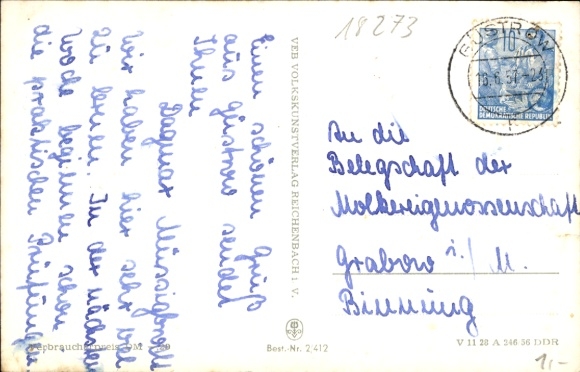 18273
Einen schönen Gruß
aus Güstrow sendet
Ihnen
Dagmar
Wir haben hier sehr viel
zu lernen. In der nächsten
Woche beginnen schon
die praktischen Prüfungen
VEB VOLKSKUNSTVERLAG REICHENBACH i. V.
GÜSTROW
10
DEUTSCHE
DEMOKRATISCHE REPUBLIK
An die
Belegschaft der
Molkereigenossenschaft
Grabow i./M.
Binnung
Verbraucherpreis DM
Best.-Nr. 2/412
V 11 28 A 246-56 DDR
1,-